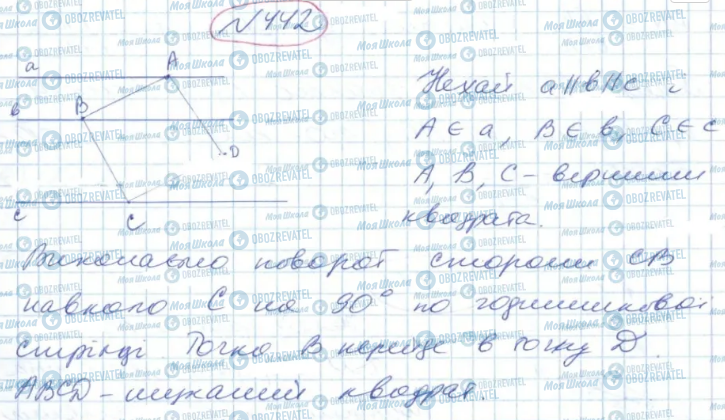 №442
a A
Нехай a||b||c і
в B
A ∈ a, B ∈ b, C ∈ c
D
A, B, C – вершини
c C
квадрата.
Виконаємо поворот сторони CB
навколо C на 90° по годинниковой
стрілці. Точка B перейде в точку D.
ABCD – шуканий квадрат.